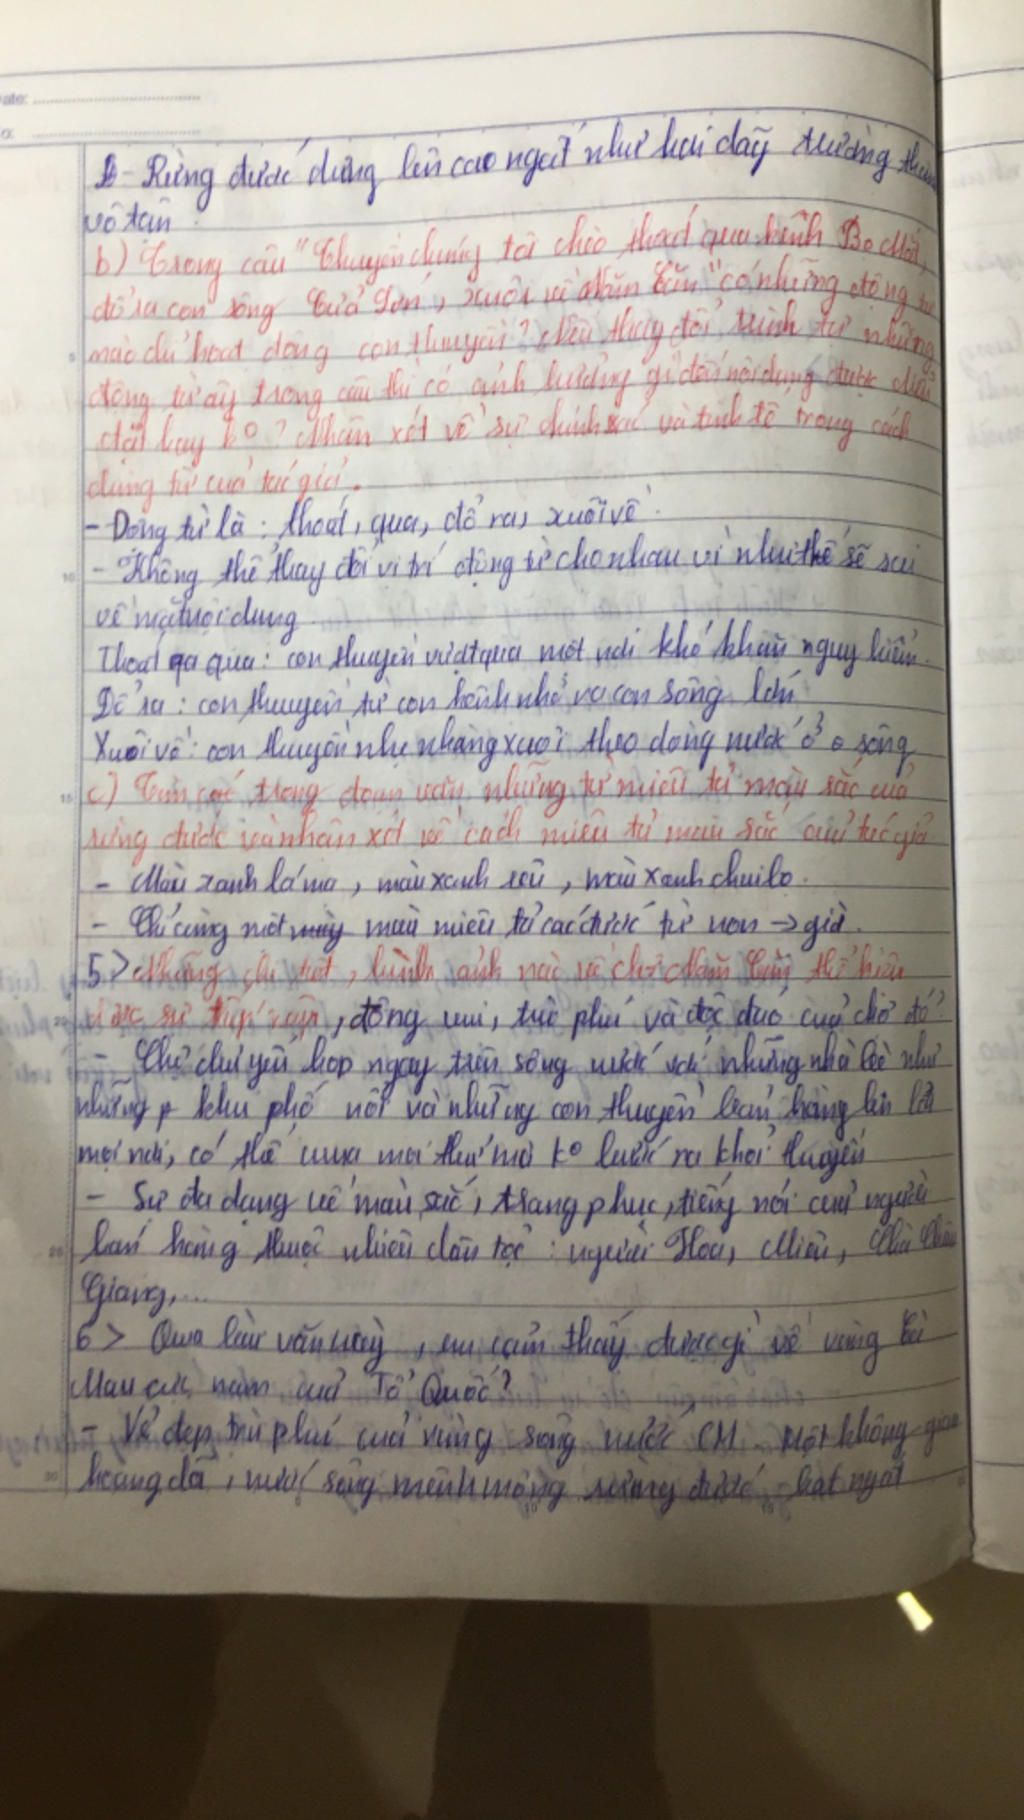 - Rừng đước dựng lên cao ngất như hai dãy trường thành
vô tận
b) Trong câu "Thuyền chúng tôi chèo thoát qua kênh Bọ Mắt,
đổ ra con sông Cửa Lớn, xuôi về Năm Căn" có những động từ
nào chỉ hoạt động con thuyền? Nếu thay đổi trình tự những
động từ ấy trong câu thì có ảnh hưởng gì đến nội dung được diễn
đạt hay ko? Nhận xét về sự chính xác và tinh tế trong cách
dùng từ của tác giả.
- Động từ là: thoát, qua, đổ ra, xuôi về
- Không thể thay đổi vị trí động từ cho nhau vì như thế sẽ sai
về mặt nội dung
Thoát qua: con thuyền vượt qua một nơi khó khăn nguy hiểm.
Đổ ra: con thuyền từ con kênh nhỏ ra con sông lớn
Xuôi về: con thuyền nhẹ nhàng xuôi theo dòng nước ở sông
c) Tìm các trong đoạn văn những từ miêu tả màu sắc của
rừng đước và nhận xét về cách miêu tả màu sắc của tác giả
- Màu xanh lá mạ, màu xanh rêu, màu xanh chai lọ.
- Chỉ cùng một màu miêu tả các đước từ non → già.
5> Những chi tiết, hình ảnh nào về chợ Năm Căn thể hiện
được sự tấp nập, đông vui, trù phú và độc đáo của chợ đó?
- Chợ chủ yếu họp ngay trên sông nước với những nhà bè như
những khu phố nổi và những con thuyền bán hàng len lỏi
mọi nơi, có thể mua mọi thứ mà ko bước ra khỏi thuyền
- Sự đa dạng về màu sắc, trang phục, tiếng nói của người
bán hàng thuộc nhiều dân tộc: người Hoa, Miên, Chà Châu
Giang,...
6> Qua bài văn này, em cảm thấy được gì về vùng Cà
Mau cực nam của Tổ Quốc?
- Vẻ đẹp trù phú của vùng sông nước CM. Một không gian
hoang dã, nước sông mênh mông rừng đước bạt ngàt